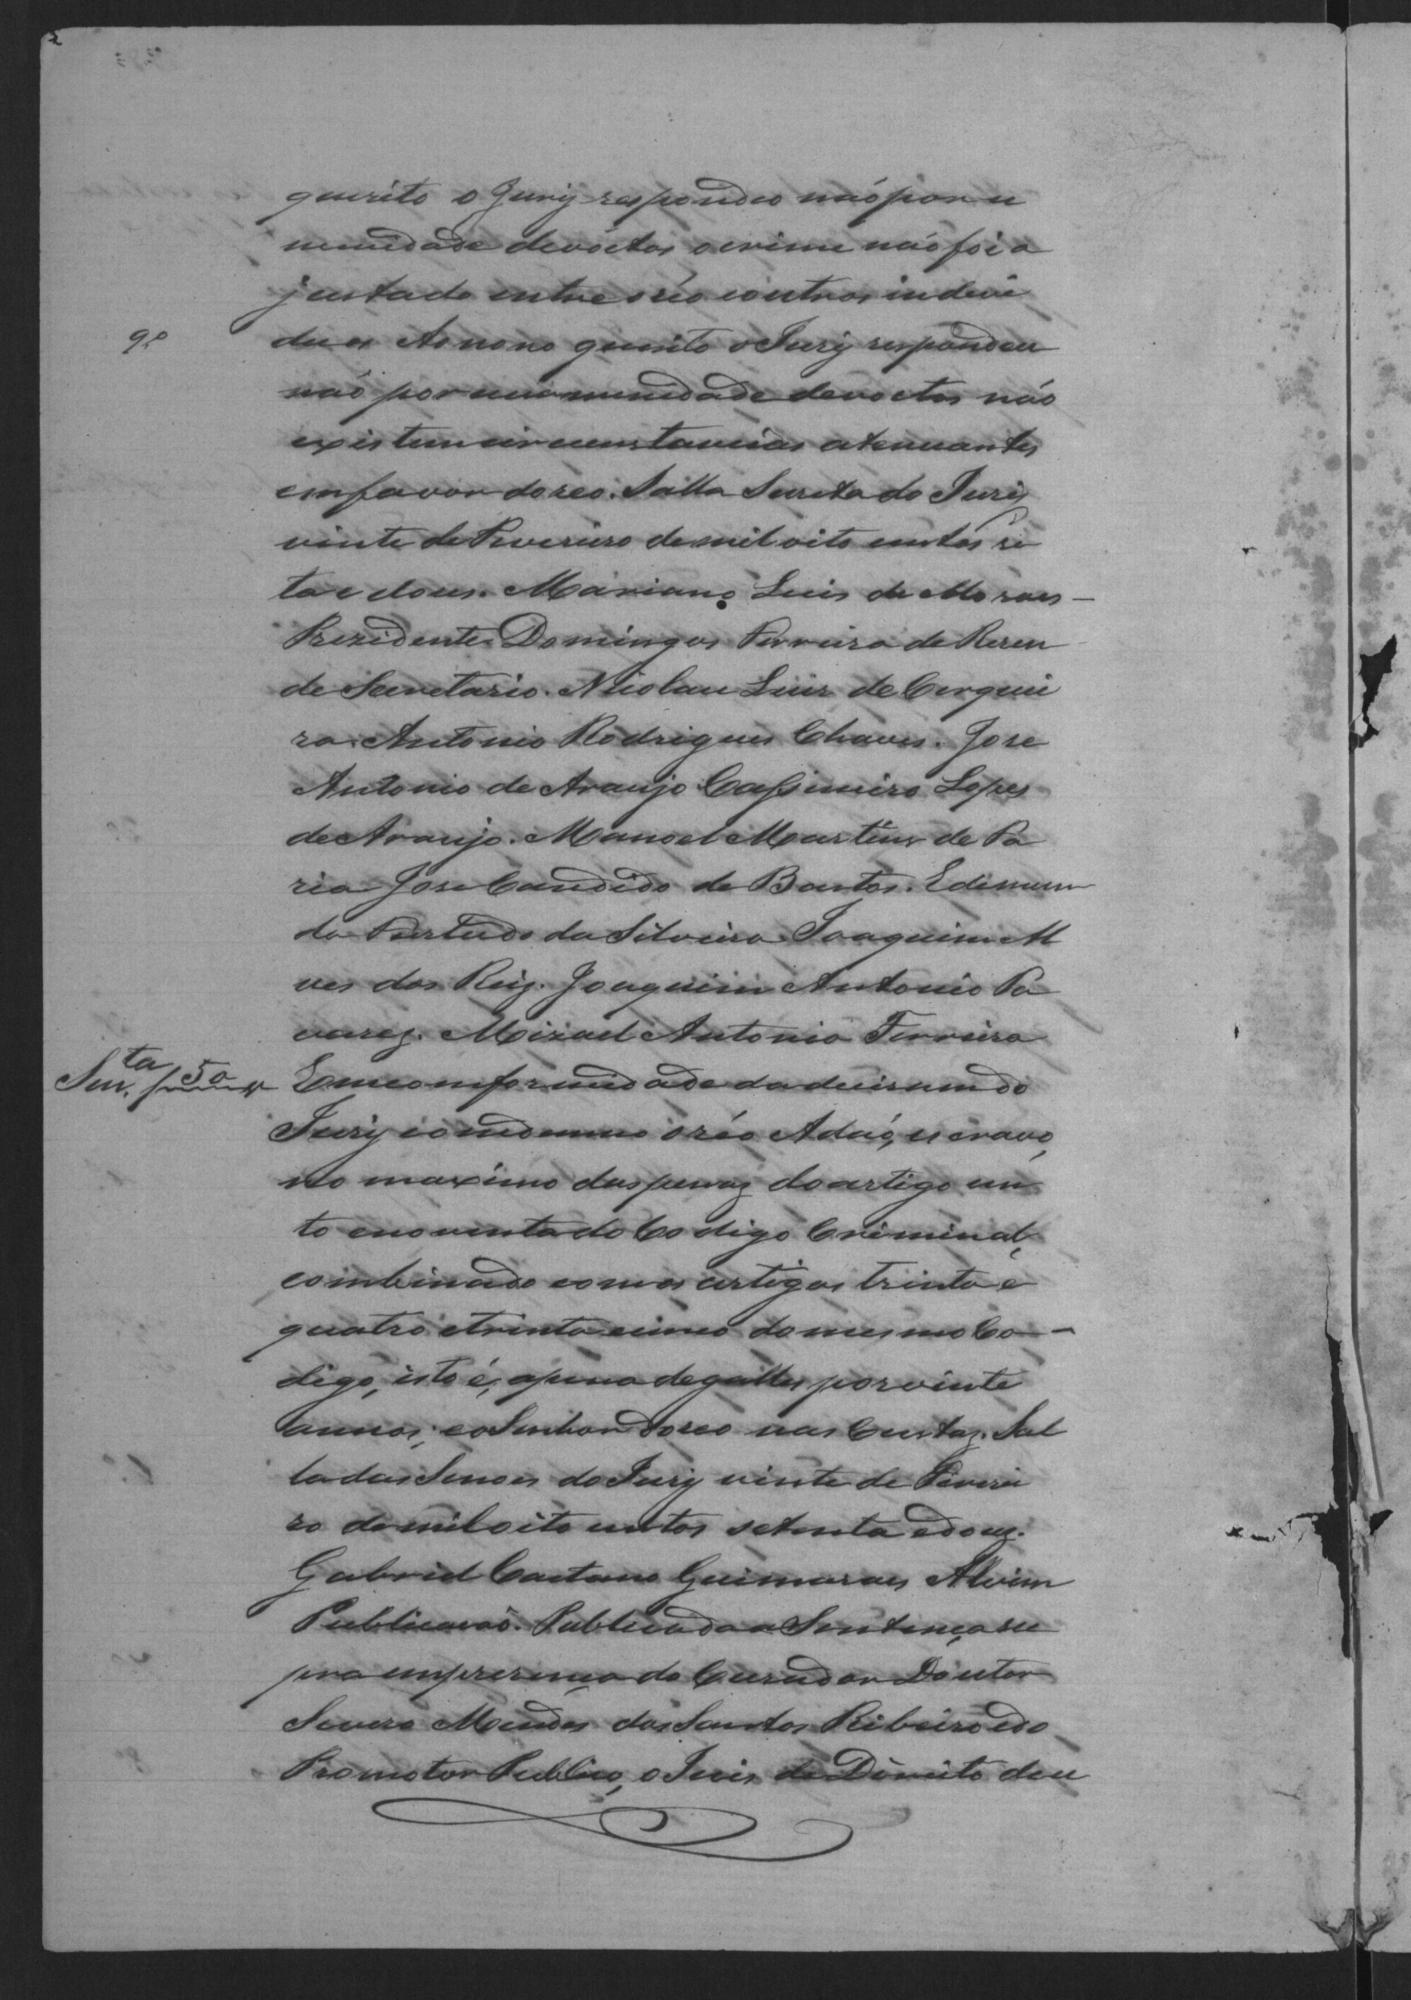 quesito o Jury respondeo não por u
nanidade de vóctos o crime não foi a
justado entre o réo e outros indevi
9.º
duos Ao nono quesito o Jury respondeu
não por unanimidade de voctos não
existem circumstancias atenuantes
em favor do reo. Salla Secreta do Jury
vinte de Fevereiro de mil oito centos se
ta e dous. Mariano Luis de Moraes –
Prezidente. Domingos Ferreira de Resen
de Secretario. Nicolau Luis de Cerquei
ra. Antonio Rodrigues Chaves. Jose
Antonio de Araujo Cassimiro Lopes
de Araujo. Manoel Martins de Fa
ria Jose Candido de Bastos. Edimun
do Furtado da Silveira Joaquim Al
ves dos Reis. Joaquim Antonio Ta
vares. Mizael Antonio Ferreira
Sen.ta f 50
Em conformidade da decisam do
Jury condemno o réo Adão, escravo,
no maximo das penas do artigo cen
to e noventa do Codigo Criminal,
combinado com os artigos trinta e
quatro e trinta cinco do mesmo Co –
digo, isto é, a pena de galles por vinte
annos; e o Senhor do reo nas Custas. Sal
la das Sessoes do Jury vinte de Feverei
ro de mil oito centos setenta e dous.
Gabriel Caetano Guimaraes Alvim
Publicacaõ. Publicada a Sentença su
pra em presença do Curador Doutor
Severo Mendes dos Santos Ribeiro e do
Promotor Publico, o Juis de Direito deu